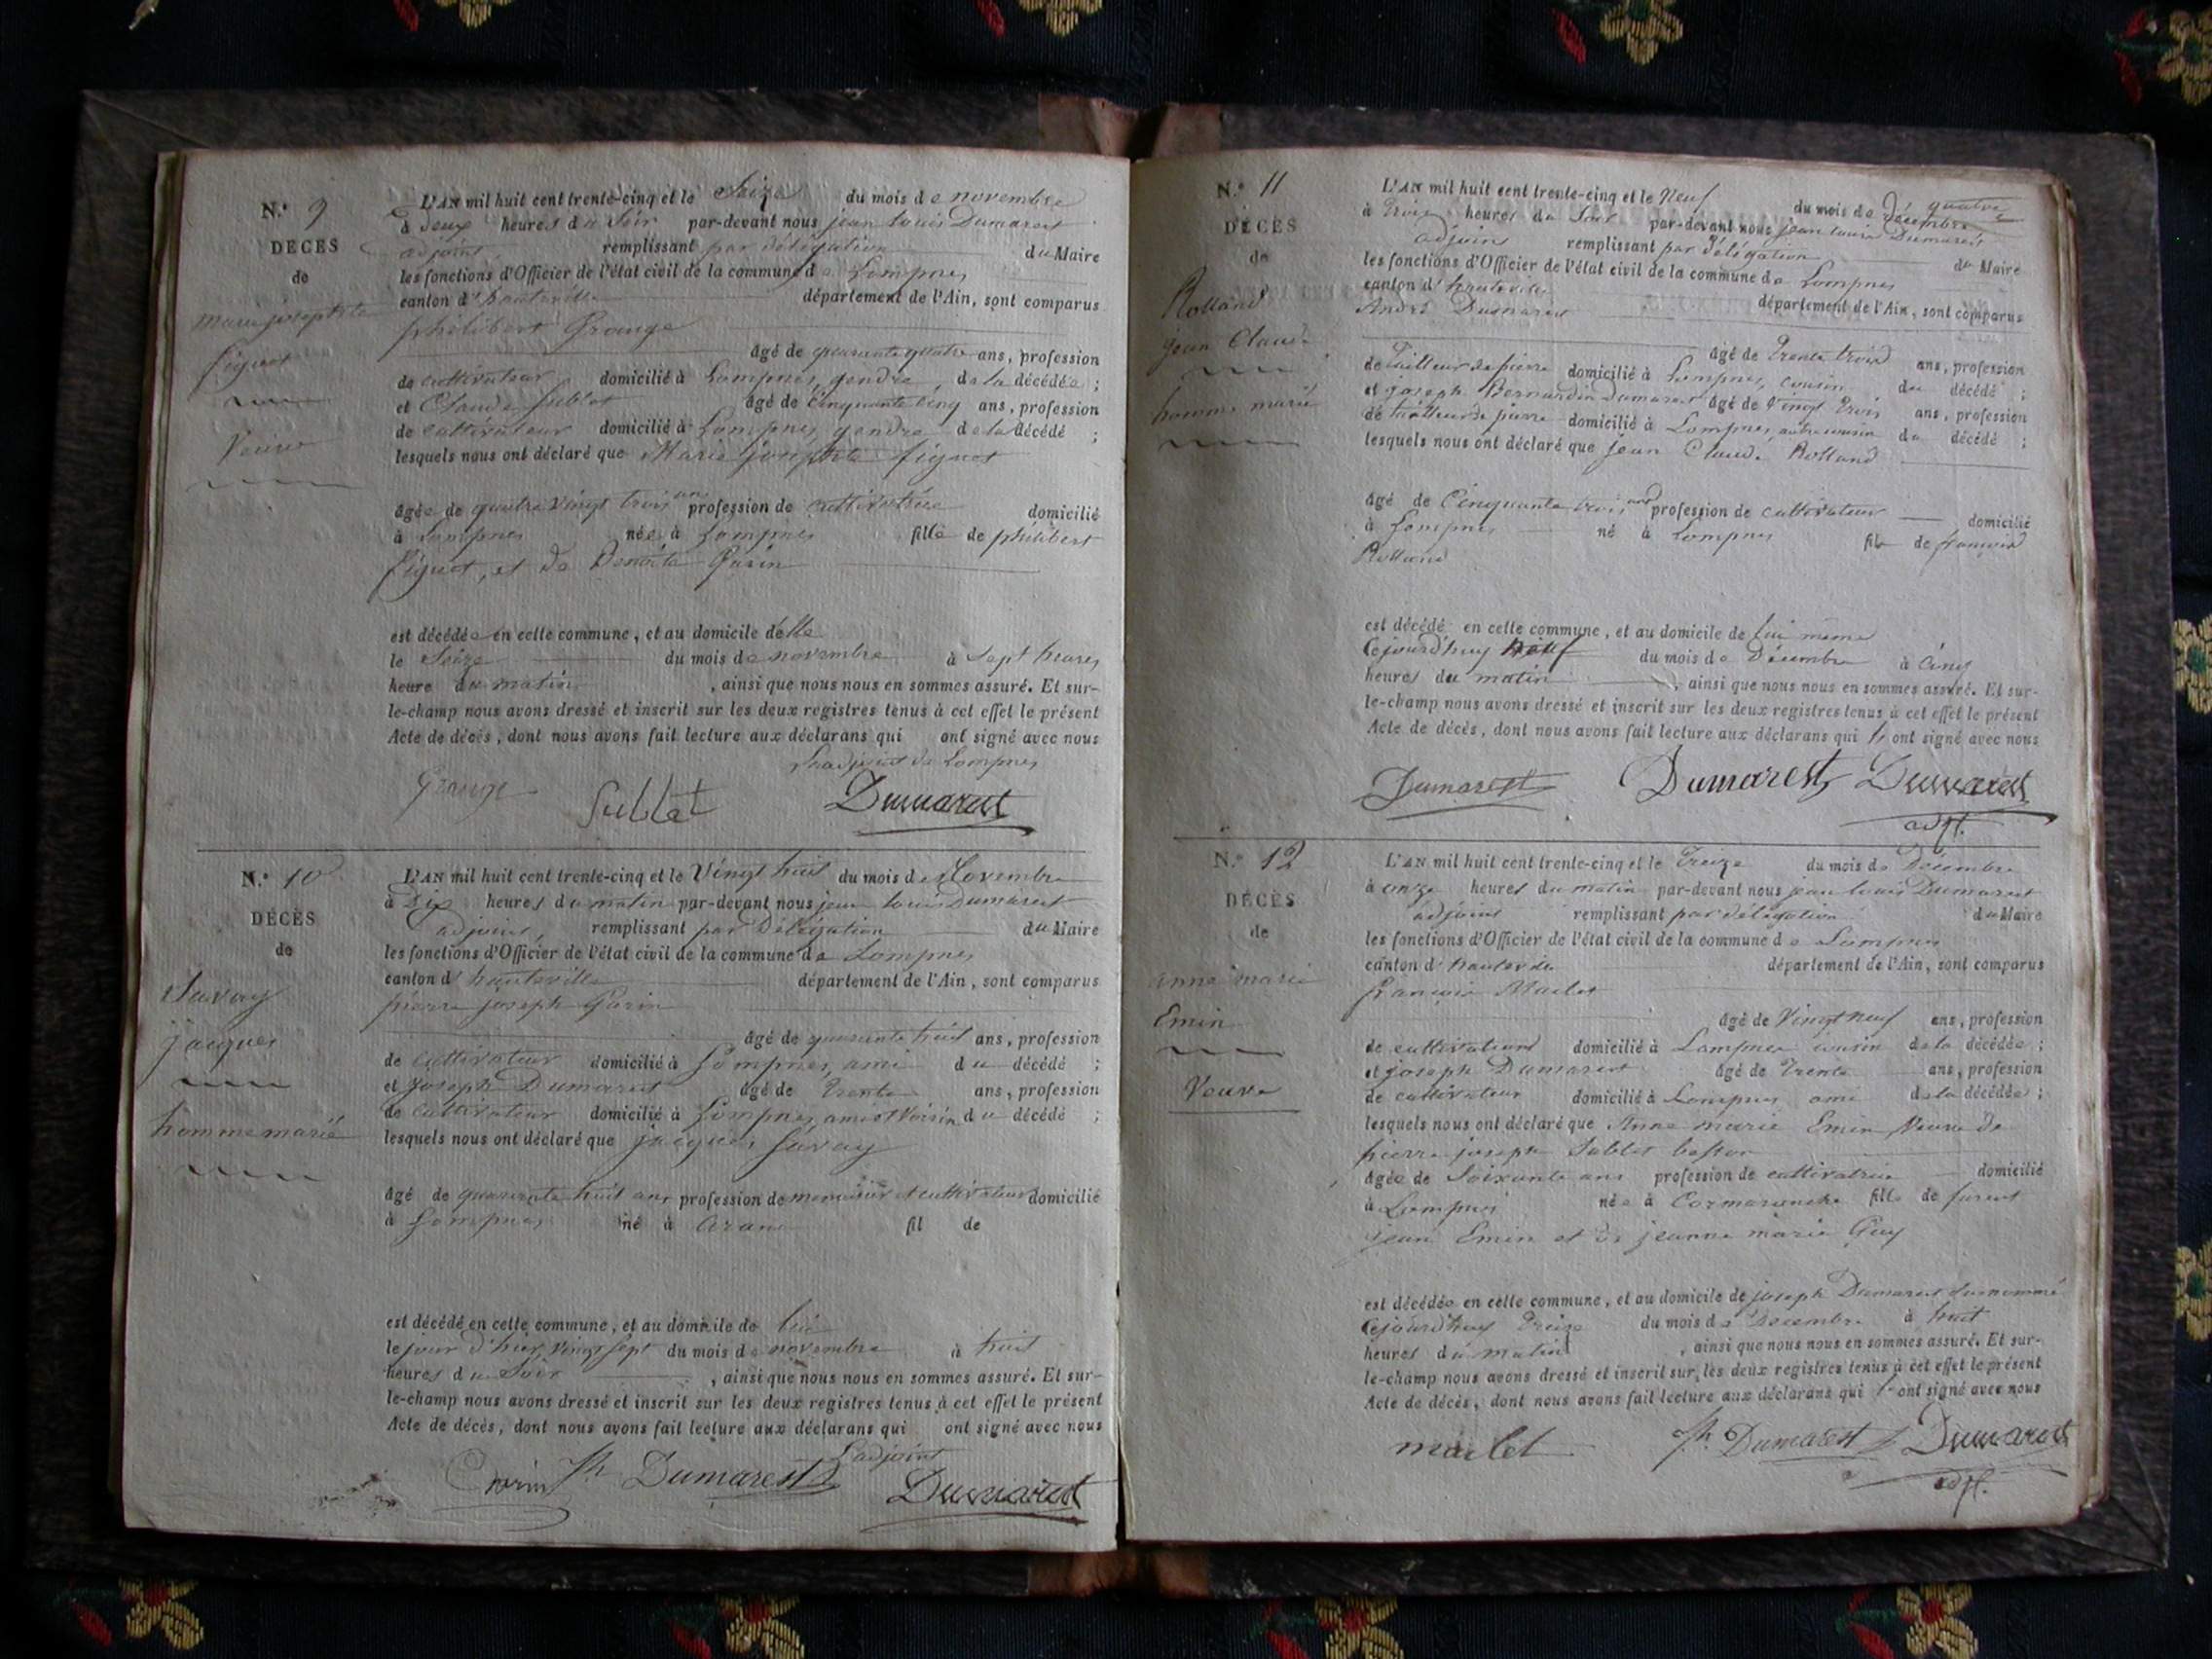 N.° 9
DÉCÈS
de
marie josephte
figuet
Veuve
L'AN mil huit cent trente-cinq et le Seize du mois de novembre
à deux heures du Soir par-devant nous jean louis Dumarest
adjoint remplissant par délégation du Maire
les fonctions d'Officier de l'état civil de la commune de Lompnes
canton d'hauteville département de l'Ain, sont comparus
philibert Grange
âgé de quarante quatre ans, profession
de cultivateur domicilié à Lompnes, gendre, de la décédée ;
et Claude Sublet âgé de Cinquante cinq ans, profession
de cultivateur domicilié à Lompnes gendre de la décédé ;
lesquels nous ont déclaré que Marie josephte figuet
âgée de quatre vingt trois ans profession de cultivatrice domicilié
à Lompnes née à Lompnes fille de philibert
figuet, et de Benoite Garin
est décédée en cette commune, et au domicile d'elle
le Seize du mois de novembre à Sept heures
heure du matin , ainsi que nous nous en sommes assuré. Et sur-
le-champ nous avons dressé et inscrit sur les deux registres tenus à cet effet le présent
Acte de décès, dont nous avons fait lecture aux déclarans qui ont signé avec nous
L'adjoint de Lompnes
Grange Sublet Dumarest
N.° 10
DÉCÈS
de
Savay
jacques
homme marié
L'AN mil huit cent trente-cinq et le Vingt huit du mois de Novembre
à Dix heures du matin par-devant nous jean louis Dumarest
adjoint, remplissant par Délégation du Maire
les fonctions d'Officier de l'état civil de la commune de Lompnes
canton d'hauteville département de l'Ain, sont comparus
pierre joseph Garin
âgé de quarante huit ans, profession
de cultivateur domicilié à Lompnes, ami du décédé ;
et joseph Dumarest âgé de Trente ans, profession
de cultivateur domicilié à Lompnes, ami et Voisin du décédé ;
lesquels nous ont déclaré que jacques Savay
âgé de quarante huit ans profession de menuisier et cultivateur domicilié
à Lompnes né à aranc fil de
est décédé en cette commune, et au domicile de lui
le jour d'hier, vingt Sept du mois de novembre à huit
heures du Soir , ainsi que nous nous en sommes assuré. Et sur-
le-champ nous avons dressé et inscrit sur les deux registres tenus à cet effet le présent
Acte de décès, dont nous avons fait lecture aux déclarans qui ont signé avec nous
L'adjoint
Garin Jh Dumarest Dumarest
N.° 11
DÉCÈS
de
Rolland
jean Claude
homme marié
L'AN mil huit cent trente-cinq et le Neuf du mois de Décembre
à Trois heures du Soir par-devant nous jean louis Dumarest
adjoint remplissant par délégation du Maire
les fonctions d'Officier de l'état civil de la commune de Lompnes
canton d'hauteville département de l'Ain, sont comparus
André Dumarest
âgé de Trente trois ans, profession
de Tailleur de pierre domicilié à Lompnes, cousin du décédé ;
et joseph Bernardin Dumarest âgé de Vingt Trois ans, profession
de tailleur de pierre domicilié à Lompnes, autre cousin du décédé ;
lesquels nous ont déclaré que jean Claude Rolland
âgé de Cinquante trois ans profession de cultivateur domicilié
à Lompnes né à Lompnes fils de françois
Rolland
est décédé en cette commune, et au domicile de lui même
Cejourd'huy Neuf du mois de Décembre à Cinq
heures du matin , ainsi que nous nous en sommes assuré. Et sur-
le-champ nous avons dressé et inscrit sur les deux registres tenus à cet effet le présent
Acte de décès, dont nous avons fait lecture aux déclarans qui ont signé avec nous
Dumarest Dumarest Dumarest
adjt.
N.° 12
DÉCÈS
de
anne marie
Emin
Veuve
L'AN mil huit cent trente-cinq et le Treize du mois de Décembre
à onze heures du matin par-devant nous jean louis Dumarest
adjoint remplissant par délégation du Maire
les fonctions d'Officier de l'état civil de la commune de Lompnes
canton d'hauteville département de l'Ain, sont comparus
françois Maclet
âgé de Vingt neuf ans, profession
de cultivateur domicilié à Lompnes cousin de la décédée ;
et joseph Dumarest âgé de Trente ans, profession
de cultivateur domicilié à Lompnes ami de la décédée ;
lesquels nous ont déclaré que Anne marie Emin Veuve de
pierre joseph Sublet
âgée de Soixante ans profession de cultivatrice domicilié
à Lompnes née à Cormaranche fille de
jean Emin et de jeanne marie Guy
est décédée en cette commune, et au domicile de joseph Dumarest susnommé
Cejourd'huy Treize du mois de Décembre à huit
heures du matin , ainsi que nous nous en sommes assuré. Et sur-
le-champ nous avons dressé et inscrit sur les deux registres tenus à cet effet le présent
Acte de décès, dont nous avons fait lecture aux déclarans qui ont signé avec nous
maclet Jh Dumarest Dumarest
adjt.